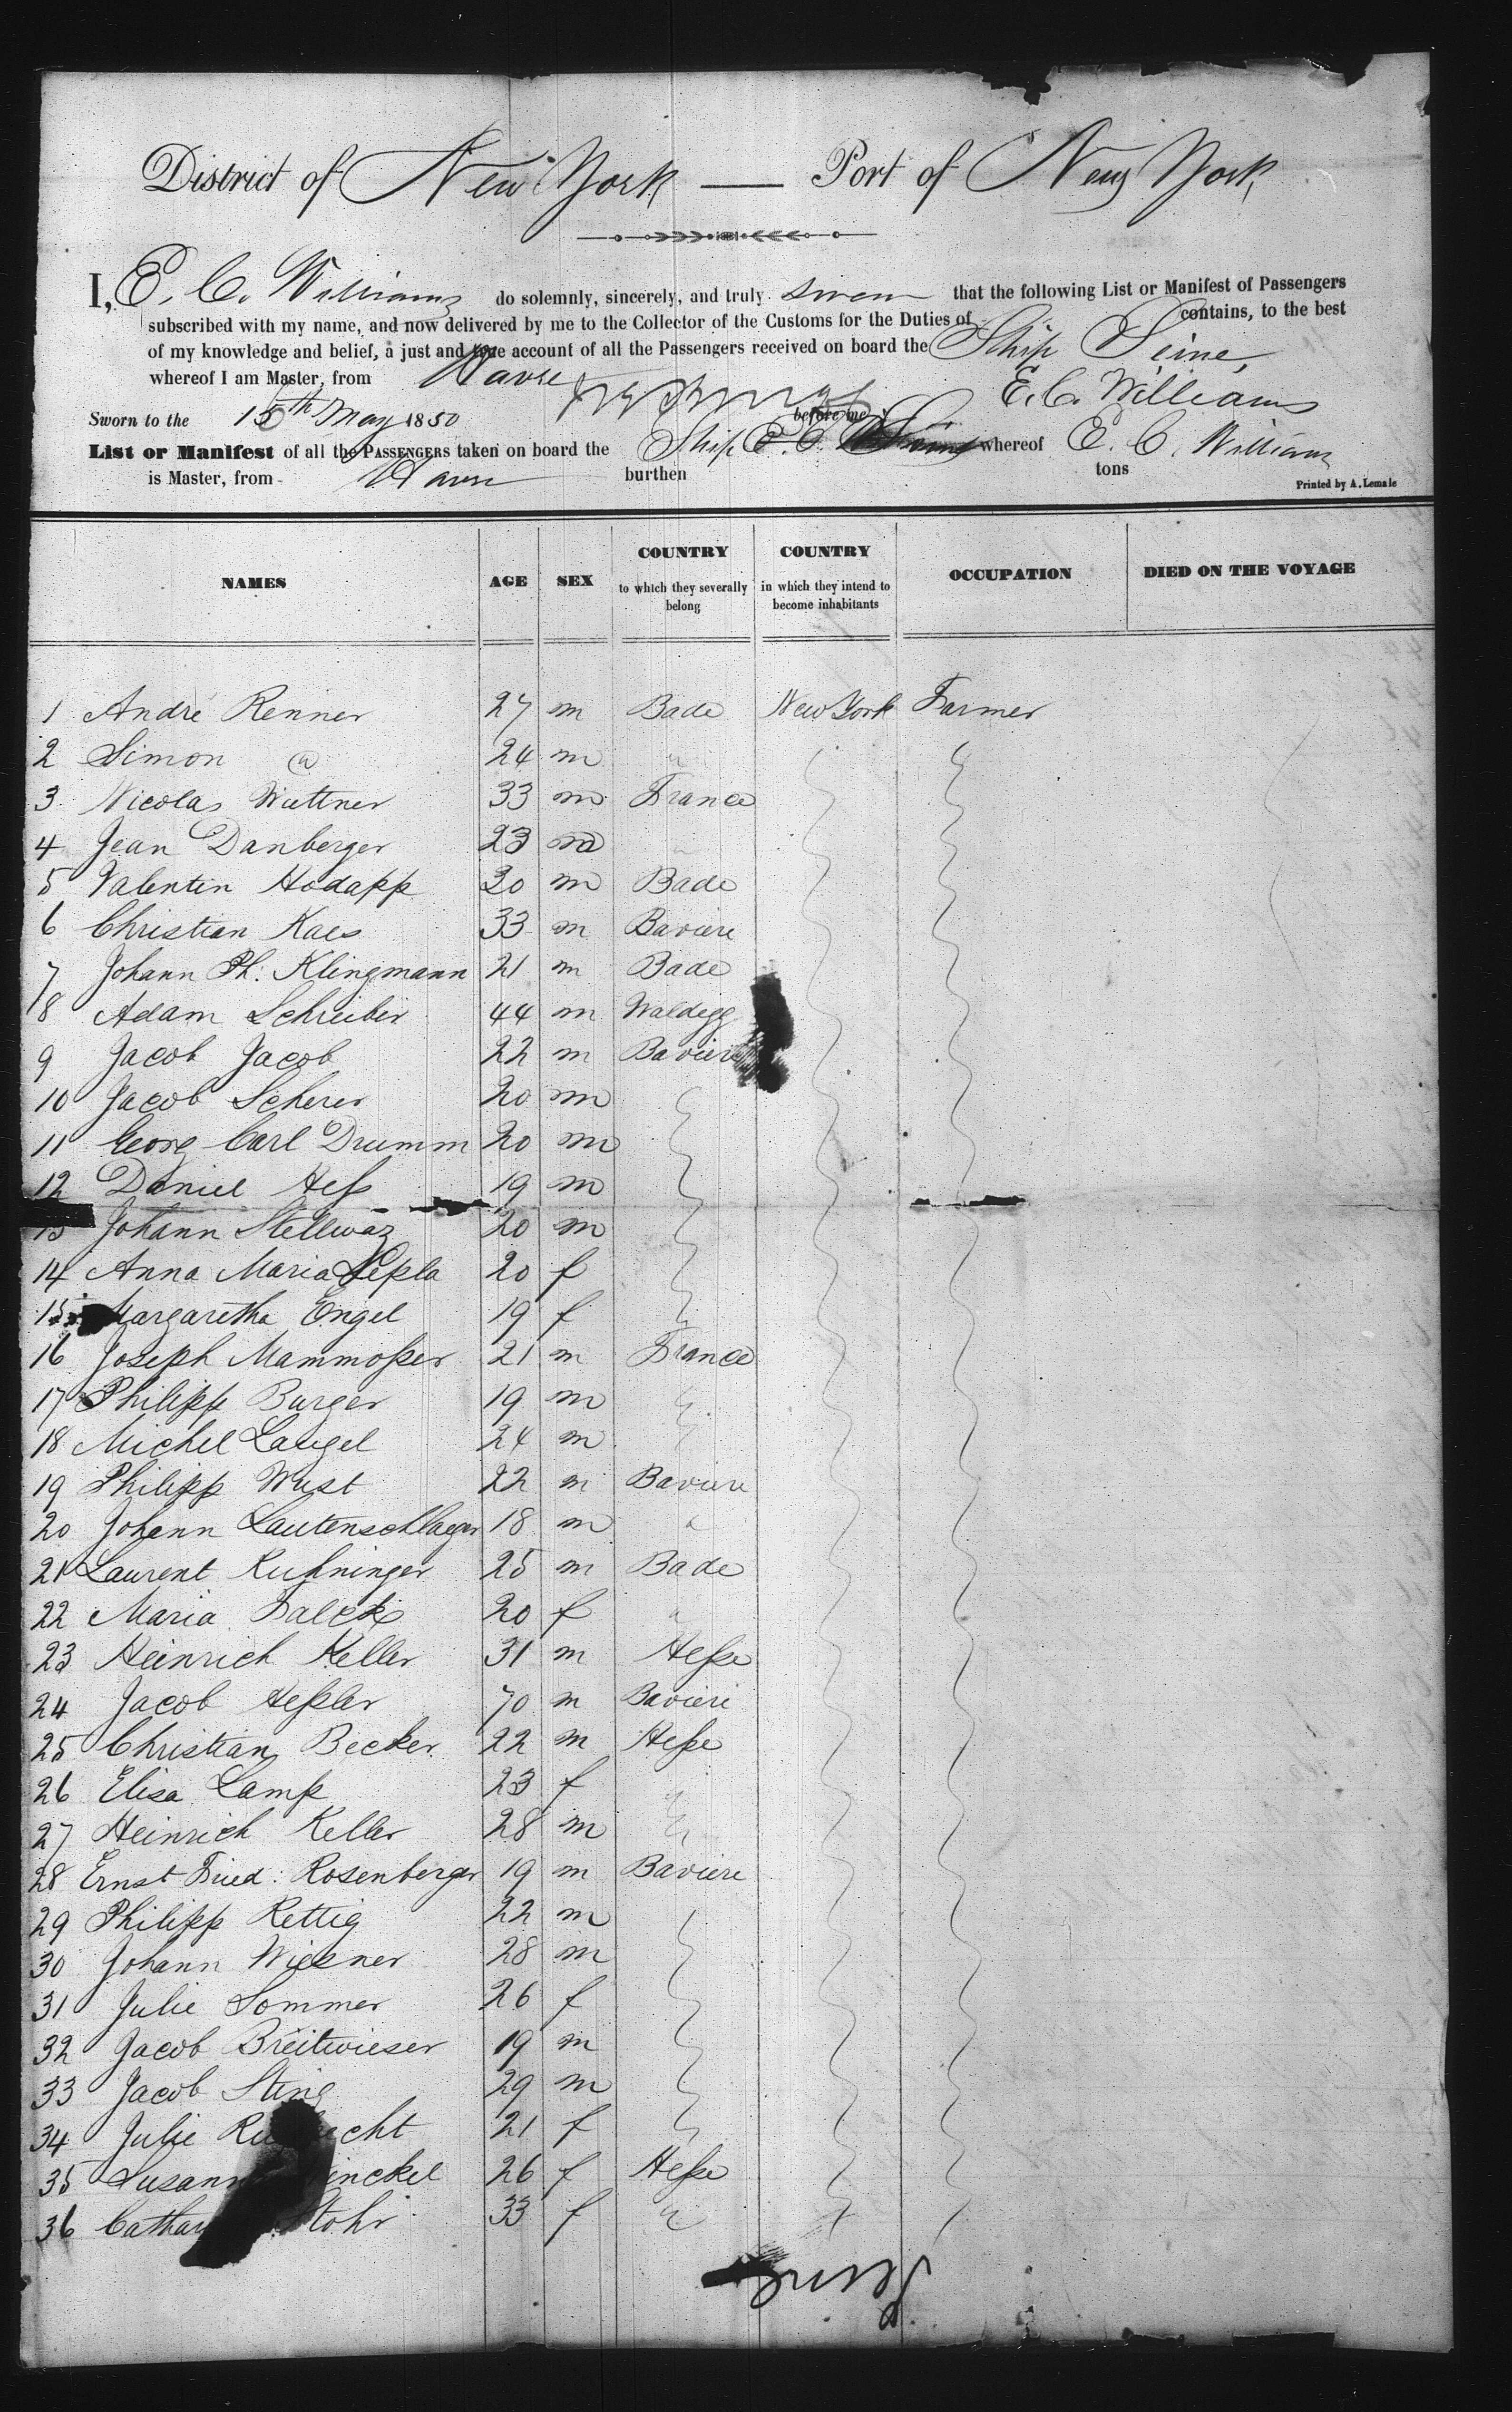 District of New York — Port of New York
I, E. C. Williams do solemnly, sincerely, and truly swear that the following List or Manifest of Passengers
subscribed with my name, and now delivered by me to the Collector of the Customs for the Duties of contains, to the best
of my knowledge and belief, a just and true account of all the Passengers received on board the Ship Seine
whereof I am Master, from Havre
E. C. Williams
Sworn to the 15th May 1850 before me
List or Manifest of all the PASSENGERS taken on board the Ship whereof E. C. Williams
is Master, from Havre burthen tons
Printed by A. Lemale
NAMES AGE SEX COUNTRY to which they severally belong COUNTRY in which they intend to become inhabitants OCCUPATION DIED ON THE VOYAGE
1 André Renner 27 m Bade New York Farmer
2 Simon 24 m "
3 Nicolas Wuttner 33 m France
4 Jean Danberger 23 m "
5 Valentin Hodapp 30 m Bade
6 Christian Kaes 33 m Baviere
7 Johann Ph: Klingmann 21 m Bade
8 Adam Schreiber 44 m Waldegg
9 Jacob Jacob 22 m Baviere
10 Jacob Scherer 20 m
11 Georg Carl Drumm 20 m
12 Daniel Heß 19 m
13 Johann Stellwaz 20 m
14 Anna Maria Lepla 20 f
15 Margaretha Engel 19 f
16 Joseph Mammoßer 21 m France
17 Philipp Burger 19 m
18 Michel Laugel 24 m
19 Philipp Wust 22 m Baviere
20 Johann Lautenschlager 18 m "
21 Laurent 25 m Bade
22 Maria 20 f "
23 Heinrich Keller 31 m Heße
24 Jacob Heßler 70 m Baviere
25 Christian Becker 22 m Heße
26 Elisa Lamp 23 f "
27 Heinrich Keller 28 m "
28 Ernst Fried: Rosenberger 19 m Baviere
29 Philipp Rettig 22 m
30 Johann Wiesner 28 m
31 Julie Sommer 26 f
32 Jacob Breitwieser 19 m
33 Jacob Sting 29 m
34 Julie 21 f
35 26 f Heße
36 Stohr 33 f "